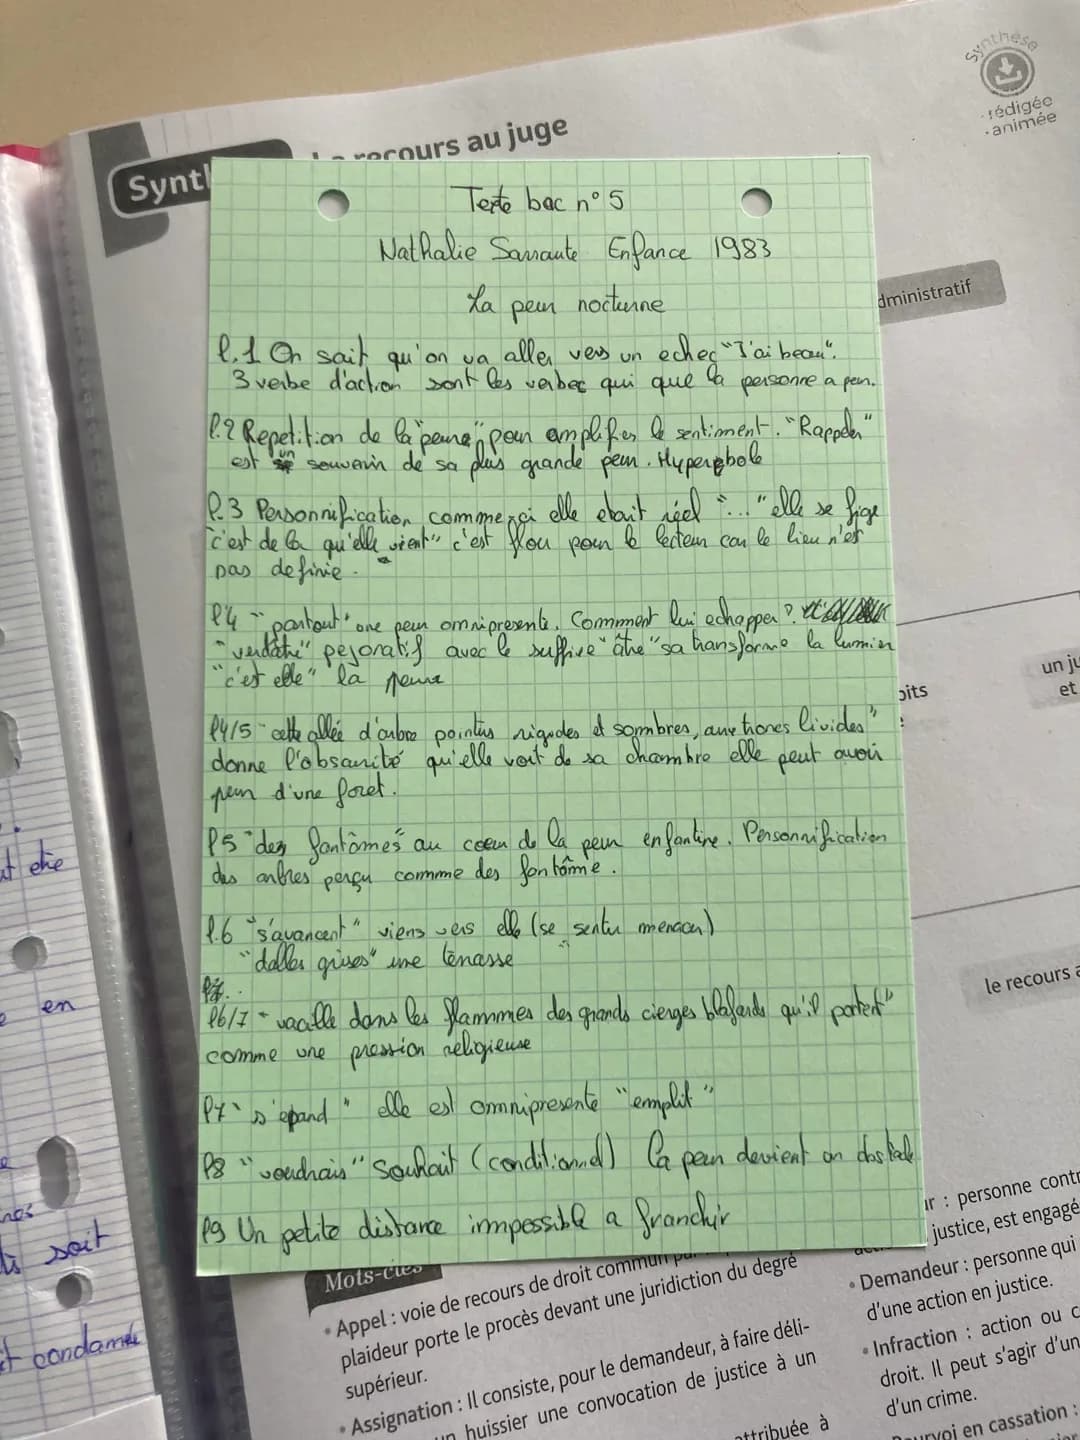 Synthèse
rédigée
animée
recours au juge
Texte bac n° 5
Nathalie Sarraute Enfance 1983
La peur nocturne
dministratif
l.1 On sait qu'on va aller vers un echec "J'ai beau".
3 verbe d'action sont les verbes qui que la personne a peur.
l.2 Repetition de la "peur" pour amplifier le sentiment. "Rappeler"
est un souvenir de sa plus grande peur. Hyperbole
l.3 Personnification, comme ci elle etait réel "..." elle se fige
"c'est de la qu'elle vient" c'est flou pour le lecteur car le lieu n'est
pas definie.
l4 "partout" one peur omnipresente. Comment lui echapper?
"verdâtre" pejoratif avec le suffixe "âtre" sa transforme la lumier
"c'est elle" la peur
l4/5 "cette allée d'arbre pointus rigides et sombres, aux troncs livides"
donne l'obsanité qu'elle voit de sa chambre elle peut avoir
peur d'une foret.
l5 "des fantômes" au coeur de la peur enfantine. Personnification
des arbres perçu comme des fantôme.
l.6 "s'avancent" viens vers elle (se sentir menacer)
"dalles grises" une terrasse
l6/7 "vacille dans les flammmes des grands cierges blafards qu'il portent"
comme une pression religieuse
l7 "s'epand" elle est omnipresente "emplit"
l8 "voudrais" Souhait (conditionnel) la peur devient un obstacle
l9 Un petite distance impossible a franchir
Mots-clés
• Appel : voie de recours de droit commun
plaideur porte le procès devant une juridiction du degré
supérieur.
• Assignation : Il consiste, pour le demandeur, à faire déli-
huissier une convocation de justice à un
ttribuée à
un ju
et
oits
le recours a
r : personne contr
justice, est engagé
• Demandeur : personne qui
d'une action en justice.
• Infraction : action ou c
droit. Il peut s'agir d'un
d'un crime.
urvoi en cassation :
en
soit
condamné